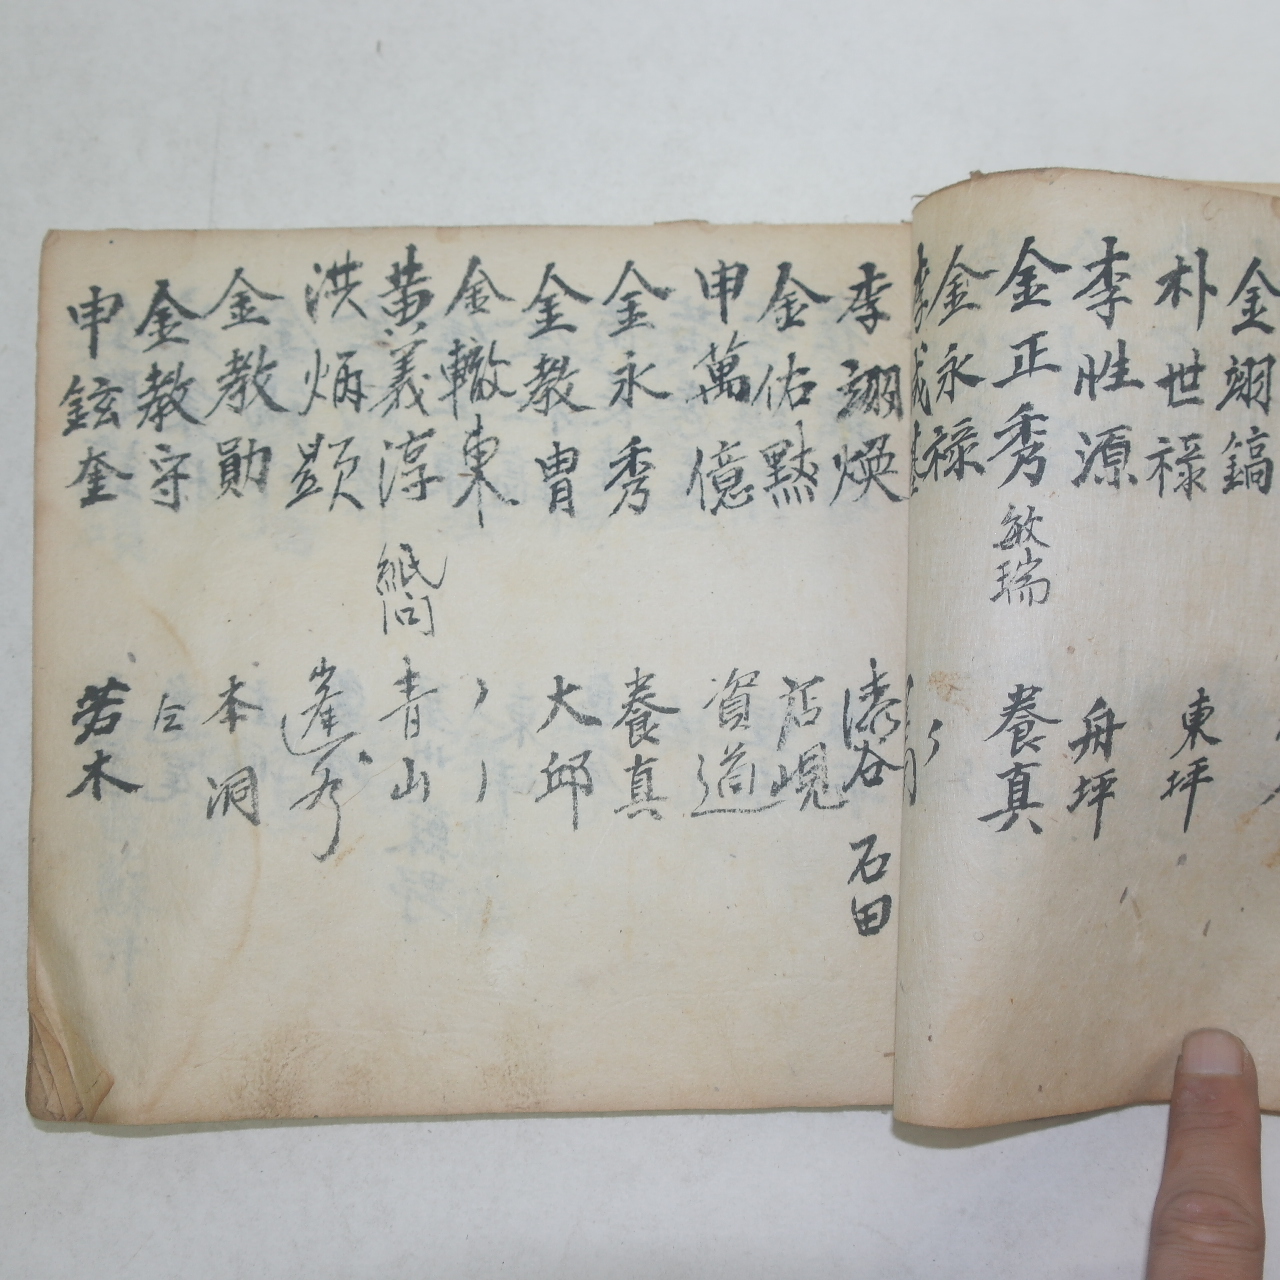 金翊鎬
朴世祿 東坪
李性源 舟坪
金正秀 敏瑞 養真
金永祿
李翊煥 漆谷 石田
金佑黙 店峴
申萬億 資道
金永秀 養真
金教冑 大邱
金轍東
黃義淳 紙問 青山
洪炳顥
金教勛 本洞
金教守 仝
申鉉奎 若木